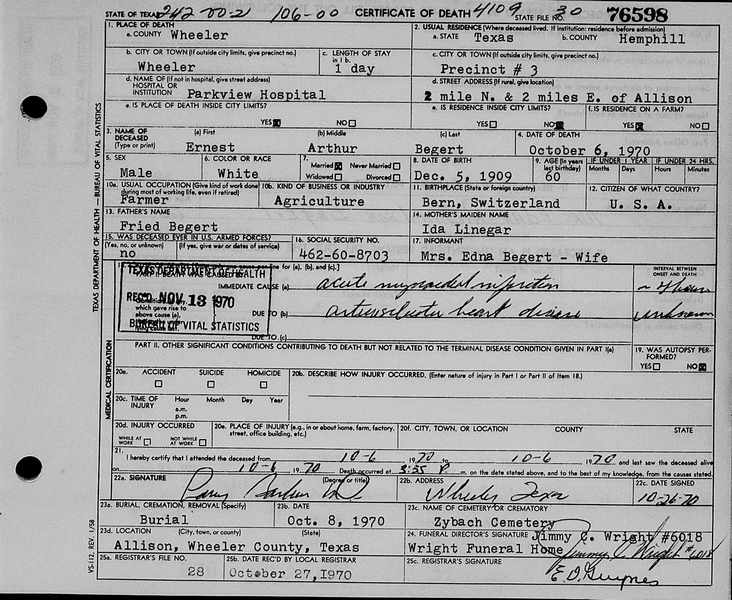 STATE OF TEXAS 242 00-2 106-00 CERTIFICATE OF DEATH 4109 STATE FILE NO. 30 76598
1. PLACE OF DEATH
a. COUNTY Wheeler
2. USUAL RESIDENCE (Where deceased lived. If institution: residence before admission)
a. STATE Texas b. COUNTY Hemphill
b. CITY OR TOWN (If outside city limits, give precinct no.)
Wheeler
c. LENGTH OF STAY in 1 b.
1 day
c. CITY OR TOWN (If outside city limits, give precinct no.)
Precinct # 3
d. NAME OF (If not in hospital, give street address)
HOSPITAL OR
INSTITUTION Parkview Hospital
d. STREET ADDRESS (If rural, give location)
2 mile N. & 2 miles E. of Allison
e. IS PLACE OF DEATH INSIDE CITY LIMITS?
YES NO
e. IS RESIDENCE INSIDE CITY LIMITS?
YES NO
f. IS RESIDENCE ON A FARM?
YES NO
3. NAME OF
DECEASED
(Type or print)
(a) First (b) Middle (c) Last
Ernest Arthur Begert
4. DATE OF DEATH
October 6, 1970
5. SEX
Male
6. COLOR OR RACE
White
7.
Married Never Married
Widowed Divorced
8. DATE OF BIRTH
Dec. 5, 1909
9. AGE (In years last birthday)
60
IF UNDER 1 YEAR
Months Days
IF UNDER 24 HRS.
Hours Minutes
10a. USUAL OCCUPATION (Give kind of work done during most of working life, even if retired)
Farmer
10b. KIND OF BUSINESS OR INDUSTRY
Agriculture
11. BIRTHPLACE (State or foreign country)
Bern, Switzerland
12. CITIZEN OF WHAT COUNTRY?
U. S. A.
13. FATHER'S NAME
Fried Begert
14. MOTHER'S MAIDEN NAME
Ida Linegar
15. WAS DECEASED EVER IN U.S. ARMED FORCES?
(Yes, no, or unknown) (If yes, give war or dates of service)
no
16. SOCIAL SECURITY NO.
462-60-8703
17. INFORMANT
Mrs. Edna Begert - Wife
line for (a), (b), and (c).]
INTERVAL BETWEEN
ONSET AND DEATH
TEXAS DEPARTMENT OF HEALTH
REC'D NOV 13 1970
BUREAU OF VITAL STATISTICS
IMMEDIATE CAUSE (a) acute myocardial infarction
which gave rise to
above cause (a),
DUE TO (b) arteriosclerotic heart disease unknown
DUE TO (c)
PART II. OTHER SIGNIFICANT CONDITIONS CONTRIBUTING TO DEATH BUT NOT RELATED TO THE TERMINAL DISEASE CONDITION GIVEN IN PART I(a)
19. WAS AUTOPSY PERFORMED?
YES NO
20a. ACCIDENT SUICIDE HOMICIDE
20b. DESCRIBE HOW INJURY OCCURRED. (Enter nature of injury in Part I or Part II of Item 18.)
20c. TIME OF
INJURY
Hour Month Day Year
a.m.
p.m.
20d. INJURY OCCURRED
WHILE AT WORK NOT WHILE AT WORK
20e. PLACE OF INJURY (e.g., in or about home, farm, factory, street, office building, etc.)
20f. CITY, TOWN, OR LOCATION COUNTY STATE
21.
I hereby certify that I attended the deceased from 10-6 1970 to 10-6 1970 and last saw the deceased alive
on 10-6 1970 Death occurred at 3:55 P m. on the date stated above, and to the best of my knowledge, from the causes stated.
22a. SIGNATURE (Degree or title)
22b. ADDRESS
Wheeler Texas
22c. DATE SIGNED
10-26-70
23a. BURIAL, CREMATION, REMOVAL (Specify)
Burial
23b. DATE
Oct. 8, 1970
23c. NAME OF CEMETERY OR CREMATORY
Zybach Cemetery
23d. LOCATION (City, town, or county) (State)
Allison, Wheeler County, Texas
24. FUNERAL DIRECTOR'S SIGNATURE Jimmy C. Wright #6018
Wright Funeral Home Jimmy C Wright #6018
25a. REGISTRAR'S FILE NO.
28
25b. DATE REC'D BY LOCAL REGISTRAR
October 27, 1970
25c. REGISTRAR'S SIGNATURE
TEXAS DEPARTMENT OF HEALTH — BUREAU OF VITAL STATISTICS
MEDICAL CERTIFICATION
VS-112, REV. 1/58